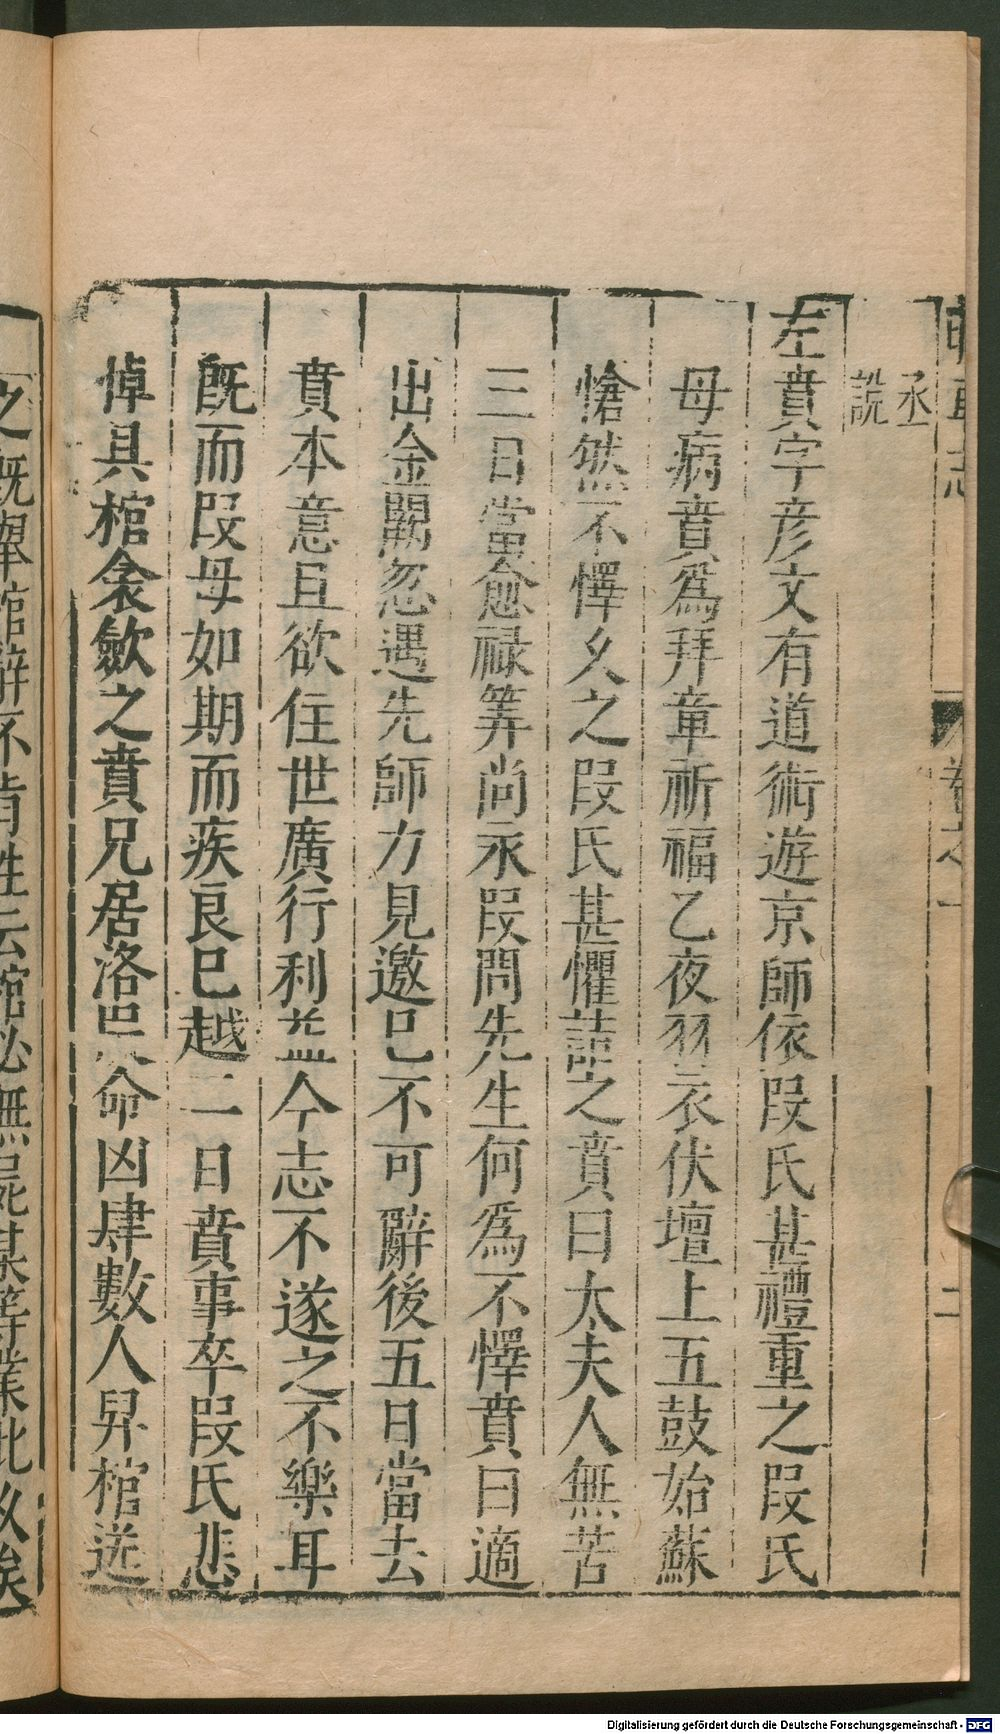 丞
說
左賁字彦文有道術遊京師依段氏甚禮重之段氏
母病賁爲拜章祈福乙夜羽衣伏壇上五鼓始蘇
愴然不懌久之段氏甚懼詰之賁曰太夫人無苦
三日當愈禄筭尚永段問先生何爲不懌賁曰適
出金闕忽遇先師力見邀已不可辭後五日當去
賁本意且欲住世廣行利益今志不遂之不樂耳
既而段母如期而疾良已越二日賁事卒段氏悲
悼具棺衾歛之賁兄居洛命凶肆數人舁棺送
之既舉棺辭不肯
云棺必無屍某等業此
卷之一
二
Digitalisierung gefördert durch die Deutsche Forschungsgemeinschaft - DFG